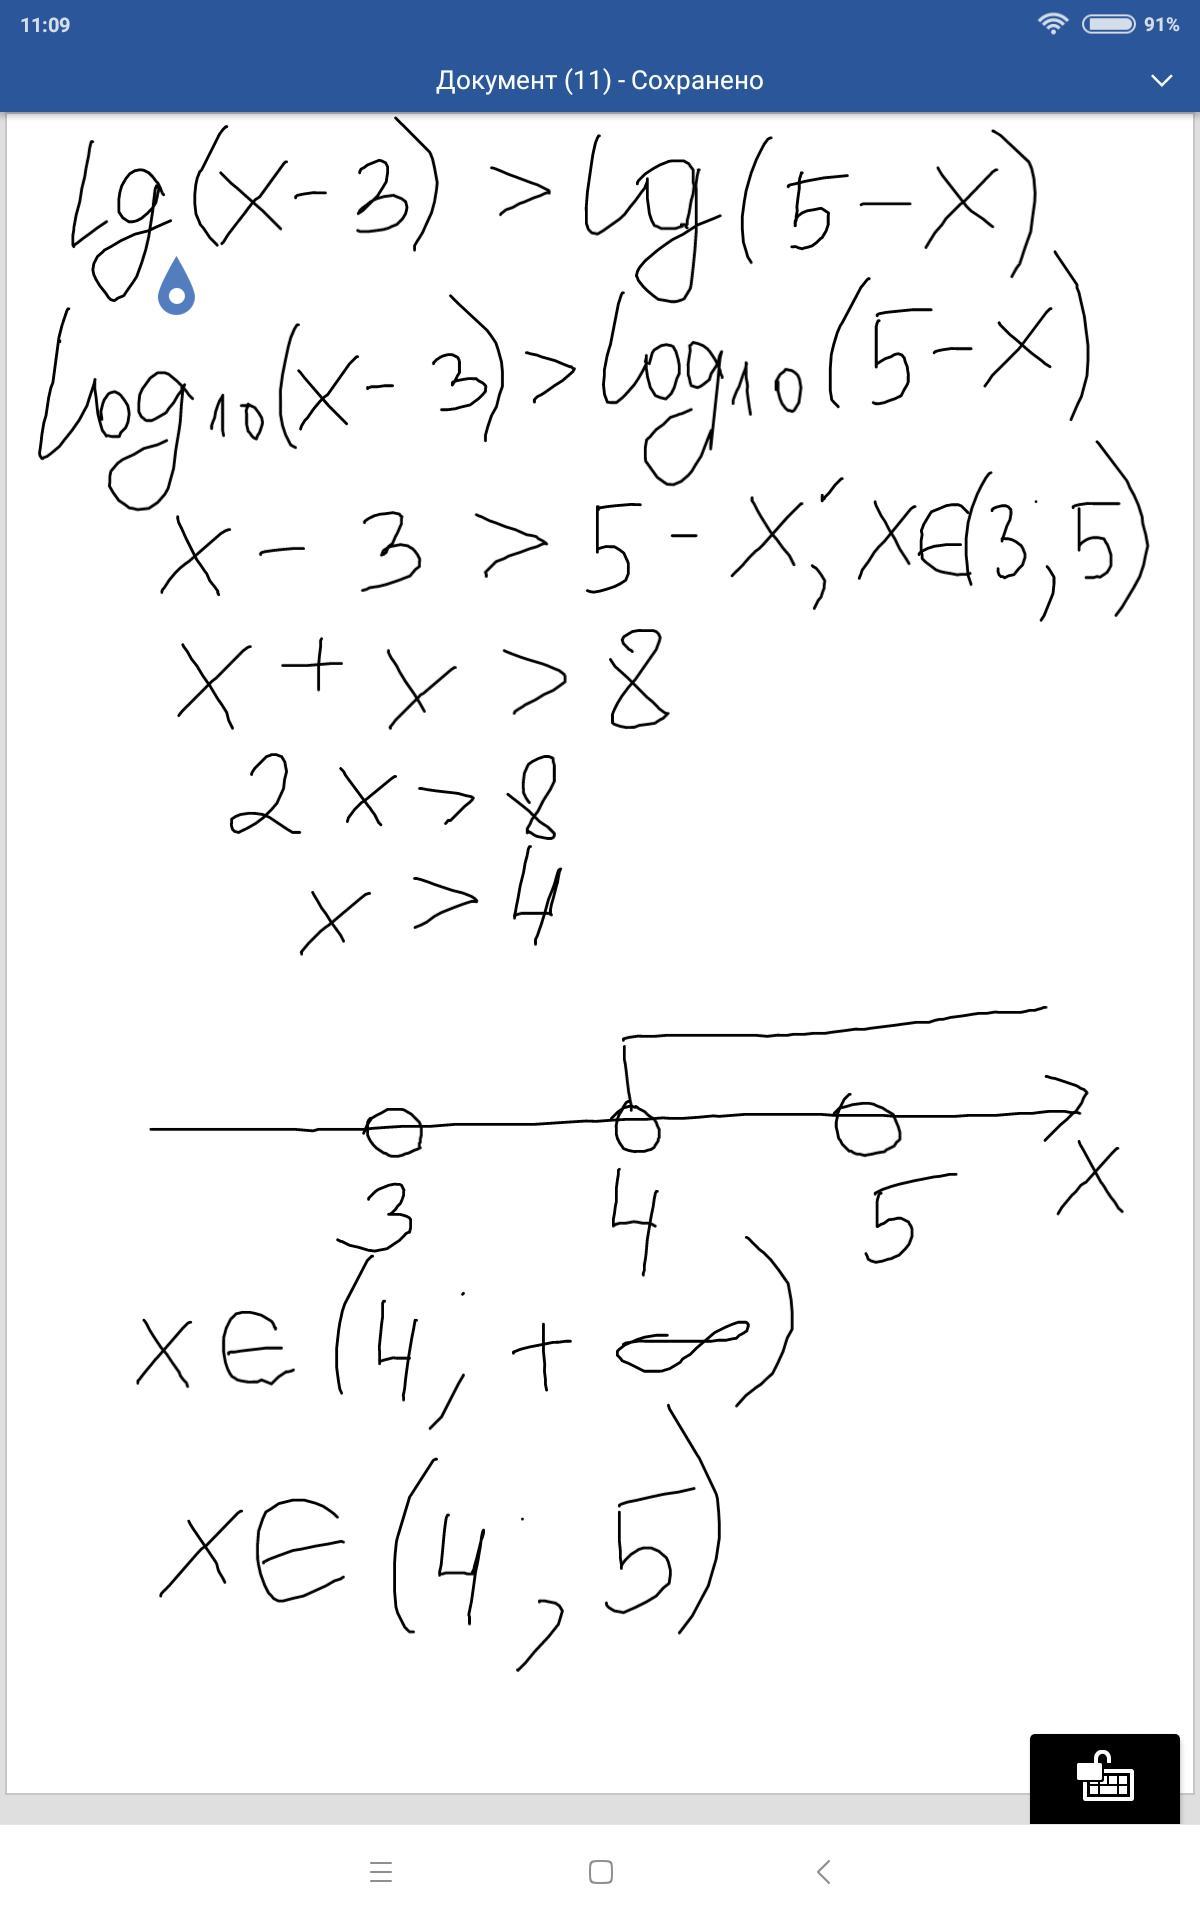 11:09 91%
Документ (11) - Сохранено
lg(x-3) > lg(5-x)
log₁₀(x-3) > log₁₀(5-x)
x - 3 > 5 - x; x∈(3;5)
x + x > 8
2x > 8
x > 4
3 4 5 x
x∈(4; +∞)
x∈(4; 5)